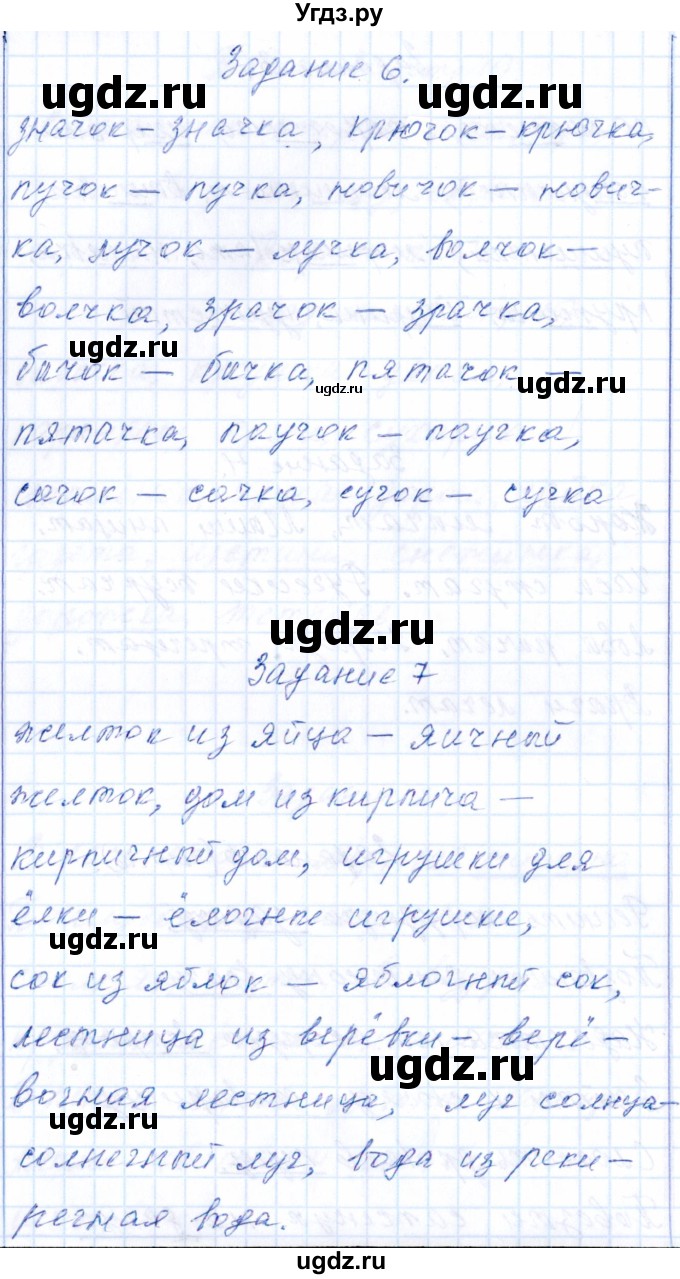 Угдз.ру
Задание 6.
ugdz.ru ugdz.ru
значок – значка, крючок – крючка,
пучок — пучка, новичок — нович-
ugdz.ru
ка, лучок — лучка, волчок —
волчка, зрачок — зрачка,
ugdz.ru
бычок — бычка, пятачок —
ugdz.ru ugdz.ru
пятачка, паучок — паучка,
сачок — сачка, сучок — сучка
ugdz.ru
Задание 7
желток из яйца — яичный
желток, дом из кирпича —
кирпичный дом, игрушки для
ёлки — ёлочные игрушки,
ugdz.ru
сок из яблок — яблочный сок,
лестница из верёвки – верё-
ugdz.ru
вочная лестница, луч солнца-
солнечный луч, вода из реки –
речная вода.
ugdz.ru